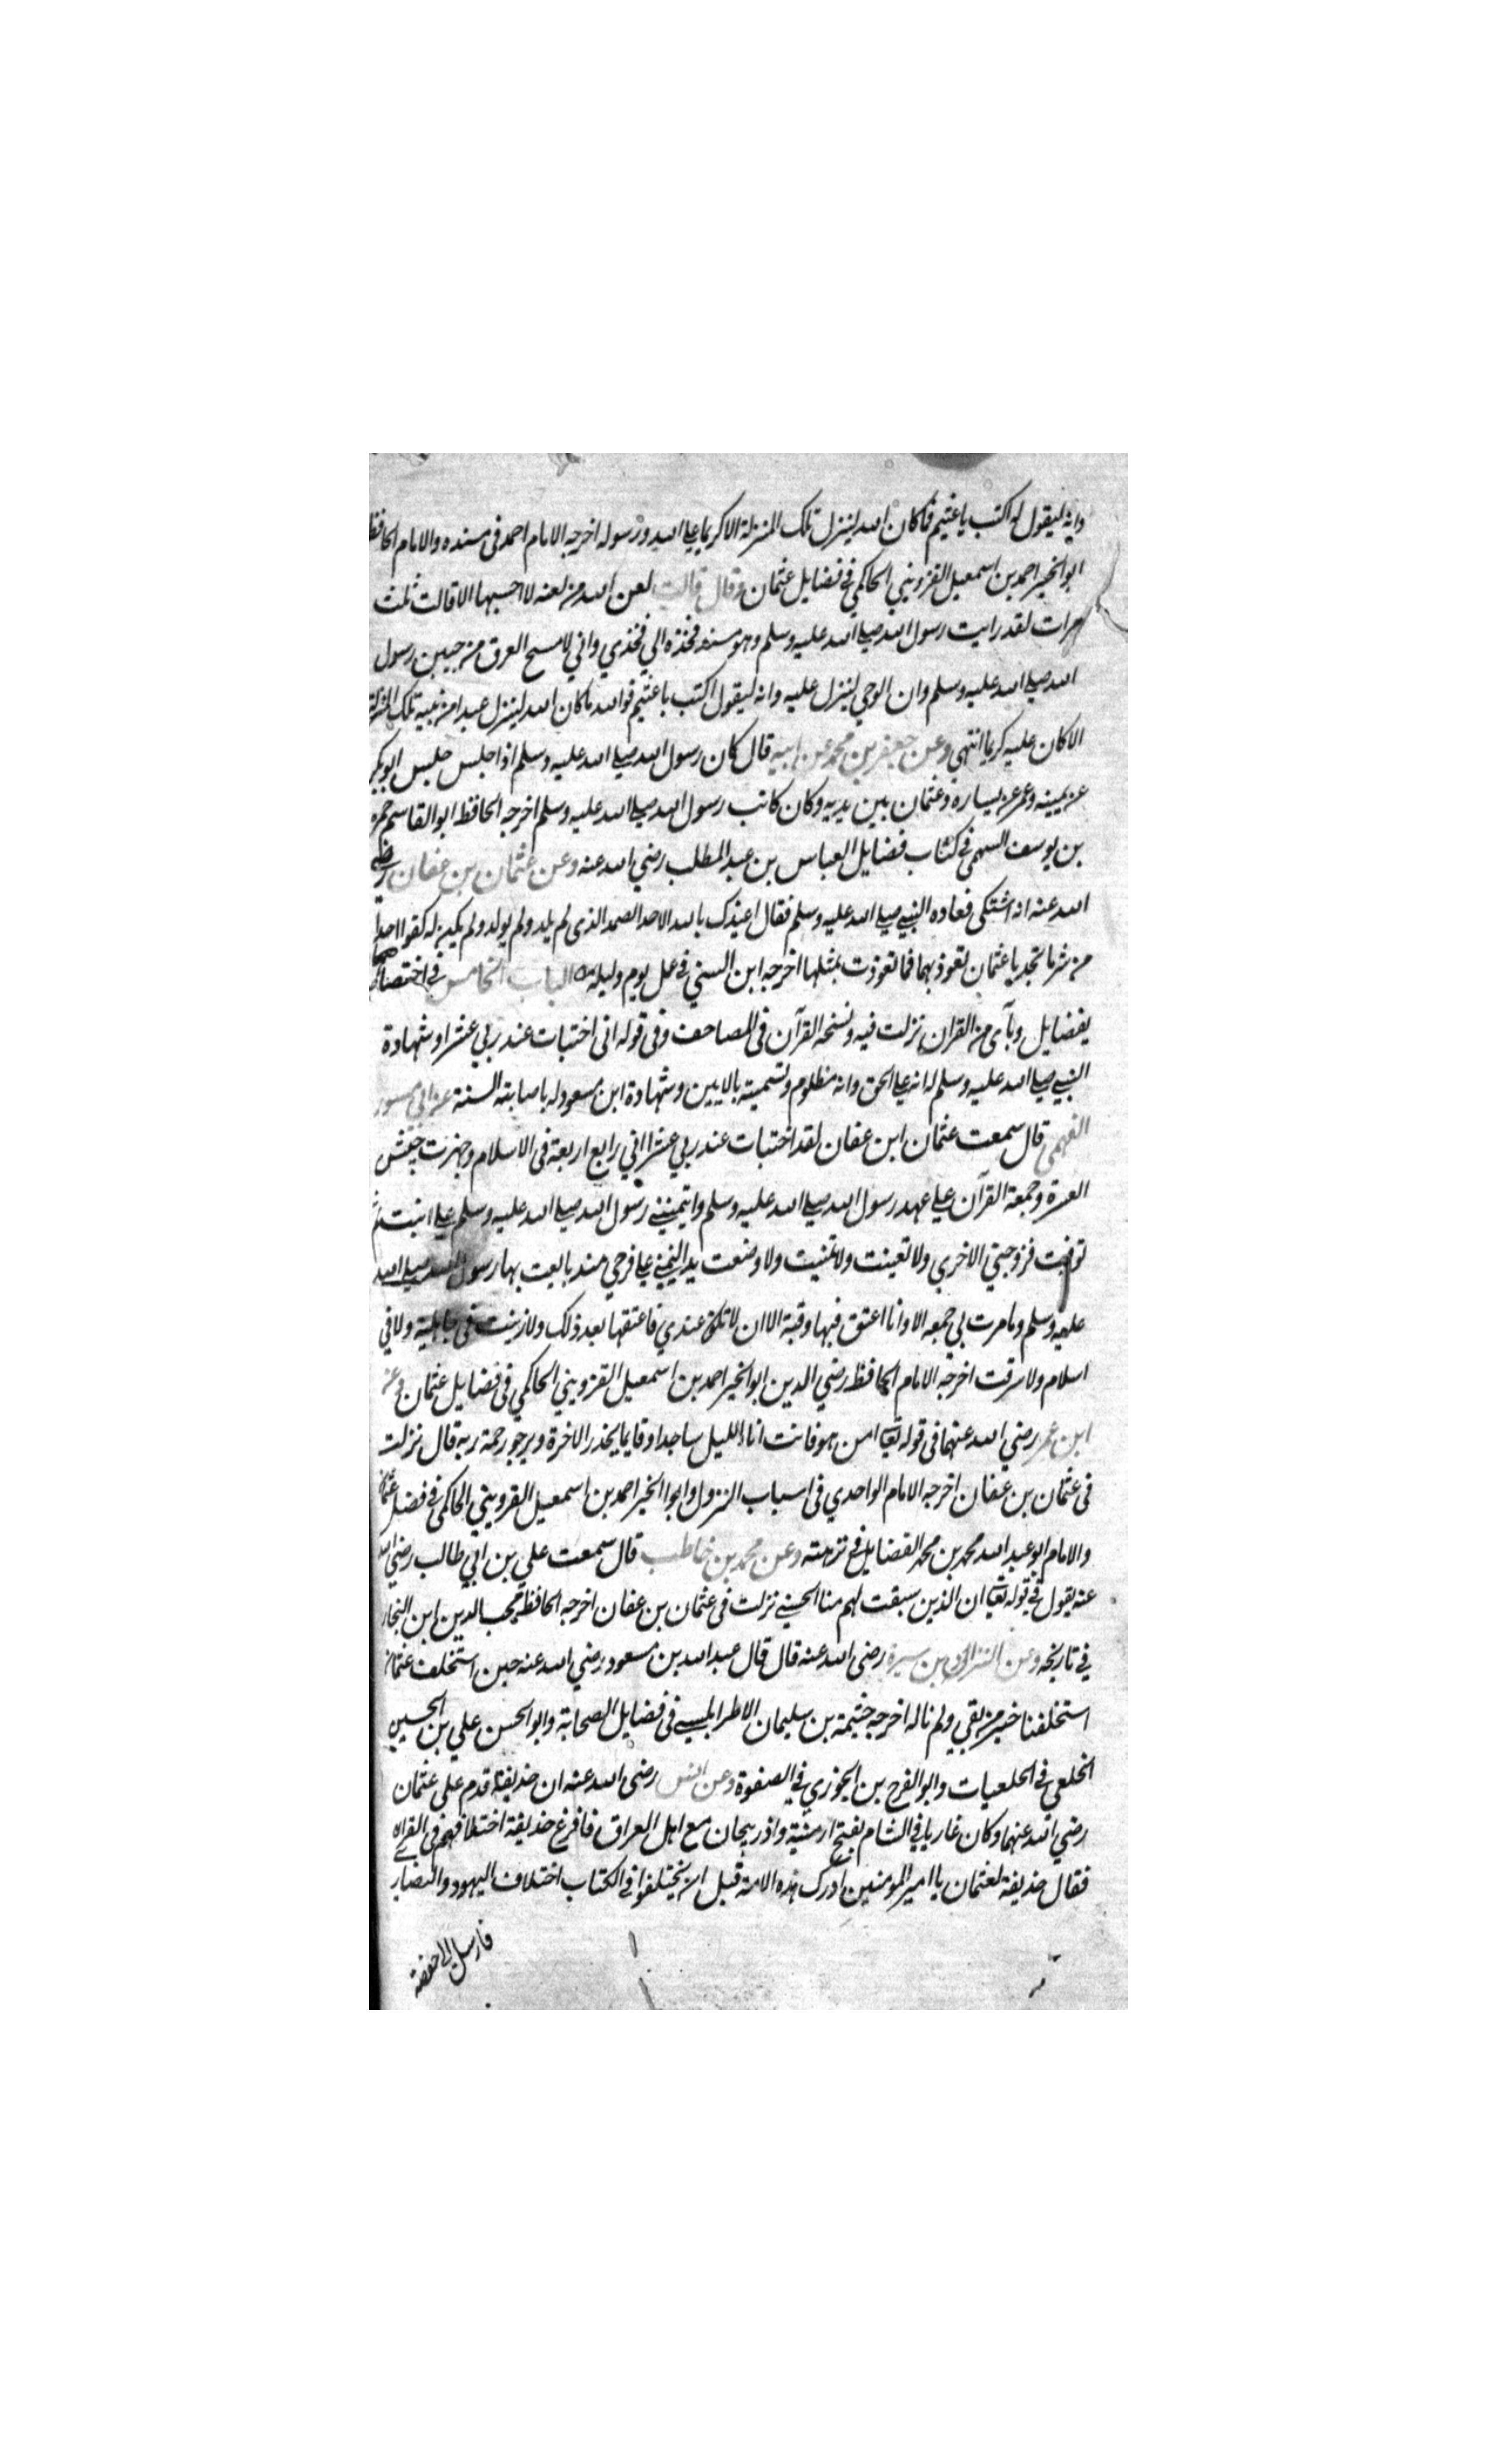 وانه ليقول له اكتب ياعثيم فما كان الله لينزل تلك المنزلة الا كريما على الله ورسوله اخرجه الامام احمد فى مسنده والامام الحافظ
ابوالخير احمد بن اسمعيل القزويني الحاكمي في فضايل عثمان وقال قالت لعن الله من لعنه لا احسبها الا قالت ثلث
مرات لقد رايت رسول الله صلى الله عليه وسلم وهو مسند فخذه الي فخذي واني لامسح العرق من جبين رسول
الله صلى الله عليه وسلم وان الوحي لينزل عليه وانه ليقول اكتب ياعثيم فوالله ما كان الله لينزل عبدا من نبيه تلك المنزلة
الا كان عليه كريما انتهى وعن جعفر بن محمد عن ابيه قال كان رسول الله صلى الله عليه وسلم اذا جلس جلس ابوبكر
عن يمينه وعمر عن يساره وعثمان بين يديه وكان كاتب رسول الله صلى الله عليه وسلم اخرجه الحافظ ابوالقاسم حمزة
بن يوسف السهمي في كتاب فضايل العباس بن عبدالمطلب رضي الله عنه وعن عثمان بن عفان رضي
الله عنه انه اشتكى فعاده النبي صلى الله عليه وسلم فقال اعيذك بالله الاحد الصمد الذى لم يلد ولم يولد ولم يكن له كفوا احد
من شر ما تجد ياعثمان تعوذ بهما فما تعوذت بمثلها اخرجه ابن السني في عمل يوم وليلة الباب الخامس في اختصاصه
بفضايل وبآى من القران نزلت فيه ونسخه القرآن فى المصاحف وفى قوله انى اختبات عند ربي عشرا وشهادة
النبي صلى الله عليه وسلم له انه على الحق وانه مظلوم وتسميته بالامين وشهادة ابن مسعود له باصابته السنة عن ابي مسور
الفهمي قال سمعت عثمان ابن عفان لقد اختبات عند ربي عشرا اني رابع اربعة فى الاسلام وجهزت جيش
العسرة وجمعة القرآن علي عهد رسول الله صلى الله عليه وسلم وايتمنني رسول الله صلى الله عليه وسلم علي ابنته ثم
توفيت فزوجني الاخري ولا تعينت ولا تمنيت ولا وضعت يد اليمني علي فرجي منذ بايعت بها رسول الله صلى الله
عليه وسلم وما مرت بي جمعه الا وانا اعتق فيها رقبة الا ان لا تكن عندي فاعتقها بعد ذلك ولا زنيت في جاهلية ولا في
اسلام ولا سرقت اخرجه الامام الحافظ رضي الدين ابوالخير احمد بن اسمعيل القزويني الحاكمي فى فضايل عثمان وعن
ابن عمر رضي الله عنهما فى قوله تعالى امن هو قانت اناء الليل ساجدا وقايما يحذر الاخرة ويرجو رحمة ربه قال نزلت
فى عثمان بن عفان اخرجه الامام الواحدي فى اسباب النزول وابو الخير احمد بن اسمعيل القزويني الحاكمي فى فضل عثمان
والامام ابو عبد الله محمد بن محمد الفضايلي في نزهته وعن محمد بن حاطب قال سمعت علي بن ابي طالب رضي الله
عنه يقول في قوله تعالى ان الذين سبقت لهم منا الحسني نزلت فى عثمان بن عفان اخرجه الحافظ محب الدين ابن النجار
في تاريخه وعن النزال بن سبرة رضى الله عنه قال قال عبد الله بن مسعود رضي الله عنه حين استخلف عثمان
استخلفنا خير من بقي ولم ناله اخرجه خيثمة بن سليمان الاطرابلسي فى فضايل الصحابة وابو الحسن علي بن الحسين
الخلعى في الخلعيات وابو الفرج بن الجوزي في الصفوة وعن انس رضى الله عنه ان حذيفة قدم على عثمان
رضي الله عنهما وكان غازيا في الشام بفتح ارمنية واذربيجان مع اهل العراق فافزع حذيفة اختلافهم فى القراه
فقال حذيفة لعثمان يا امير المومنين ادرك هذه الامة قبل ان يختلفوا في الكتاب اختلاف اليهود والنصار
فارسل الى حفصة